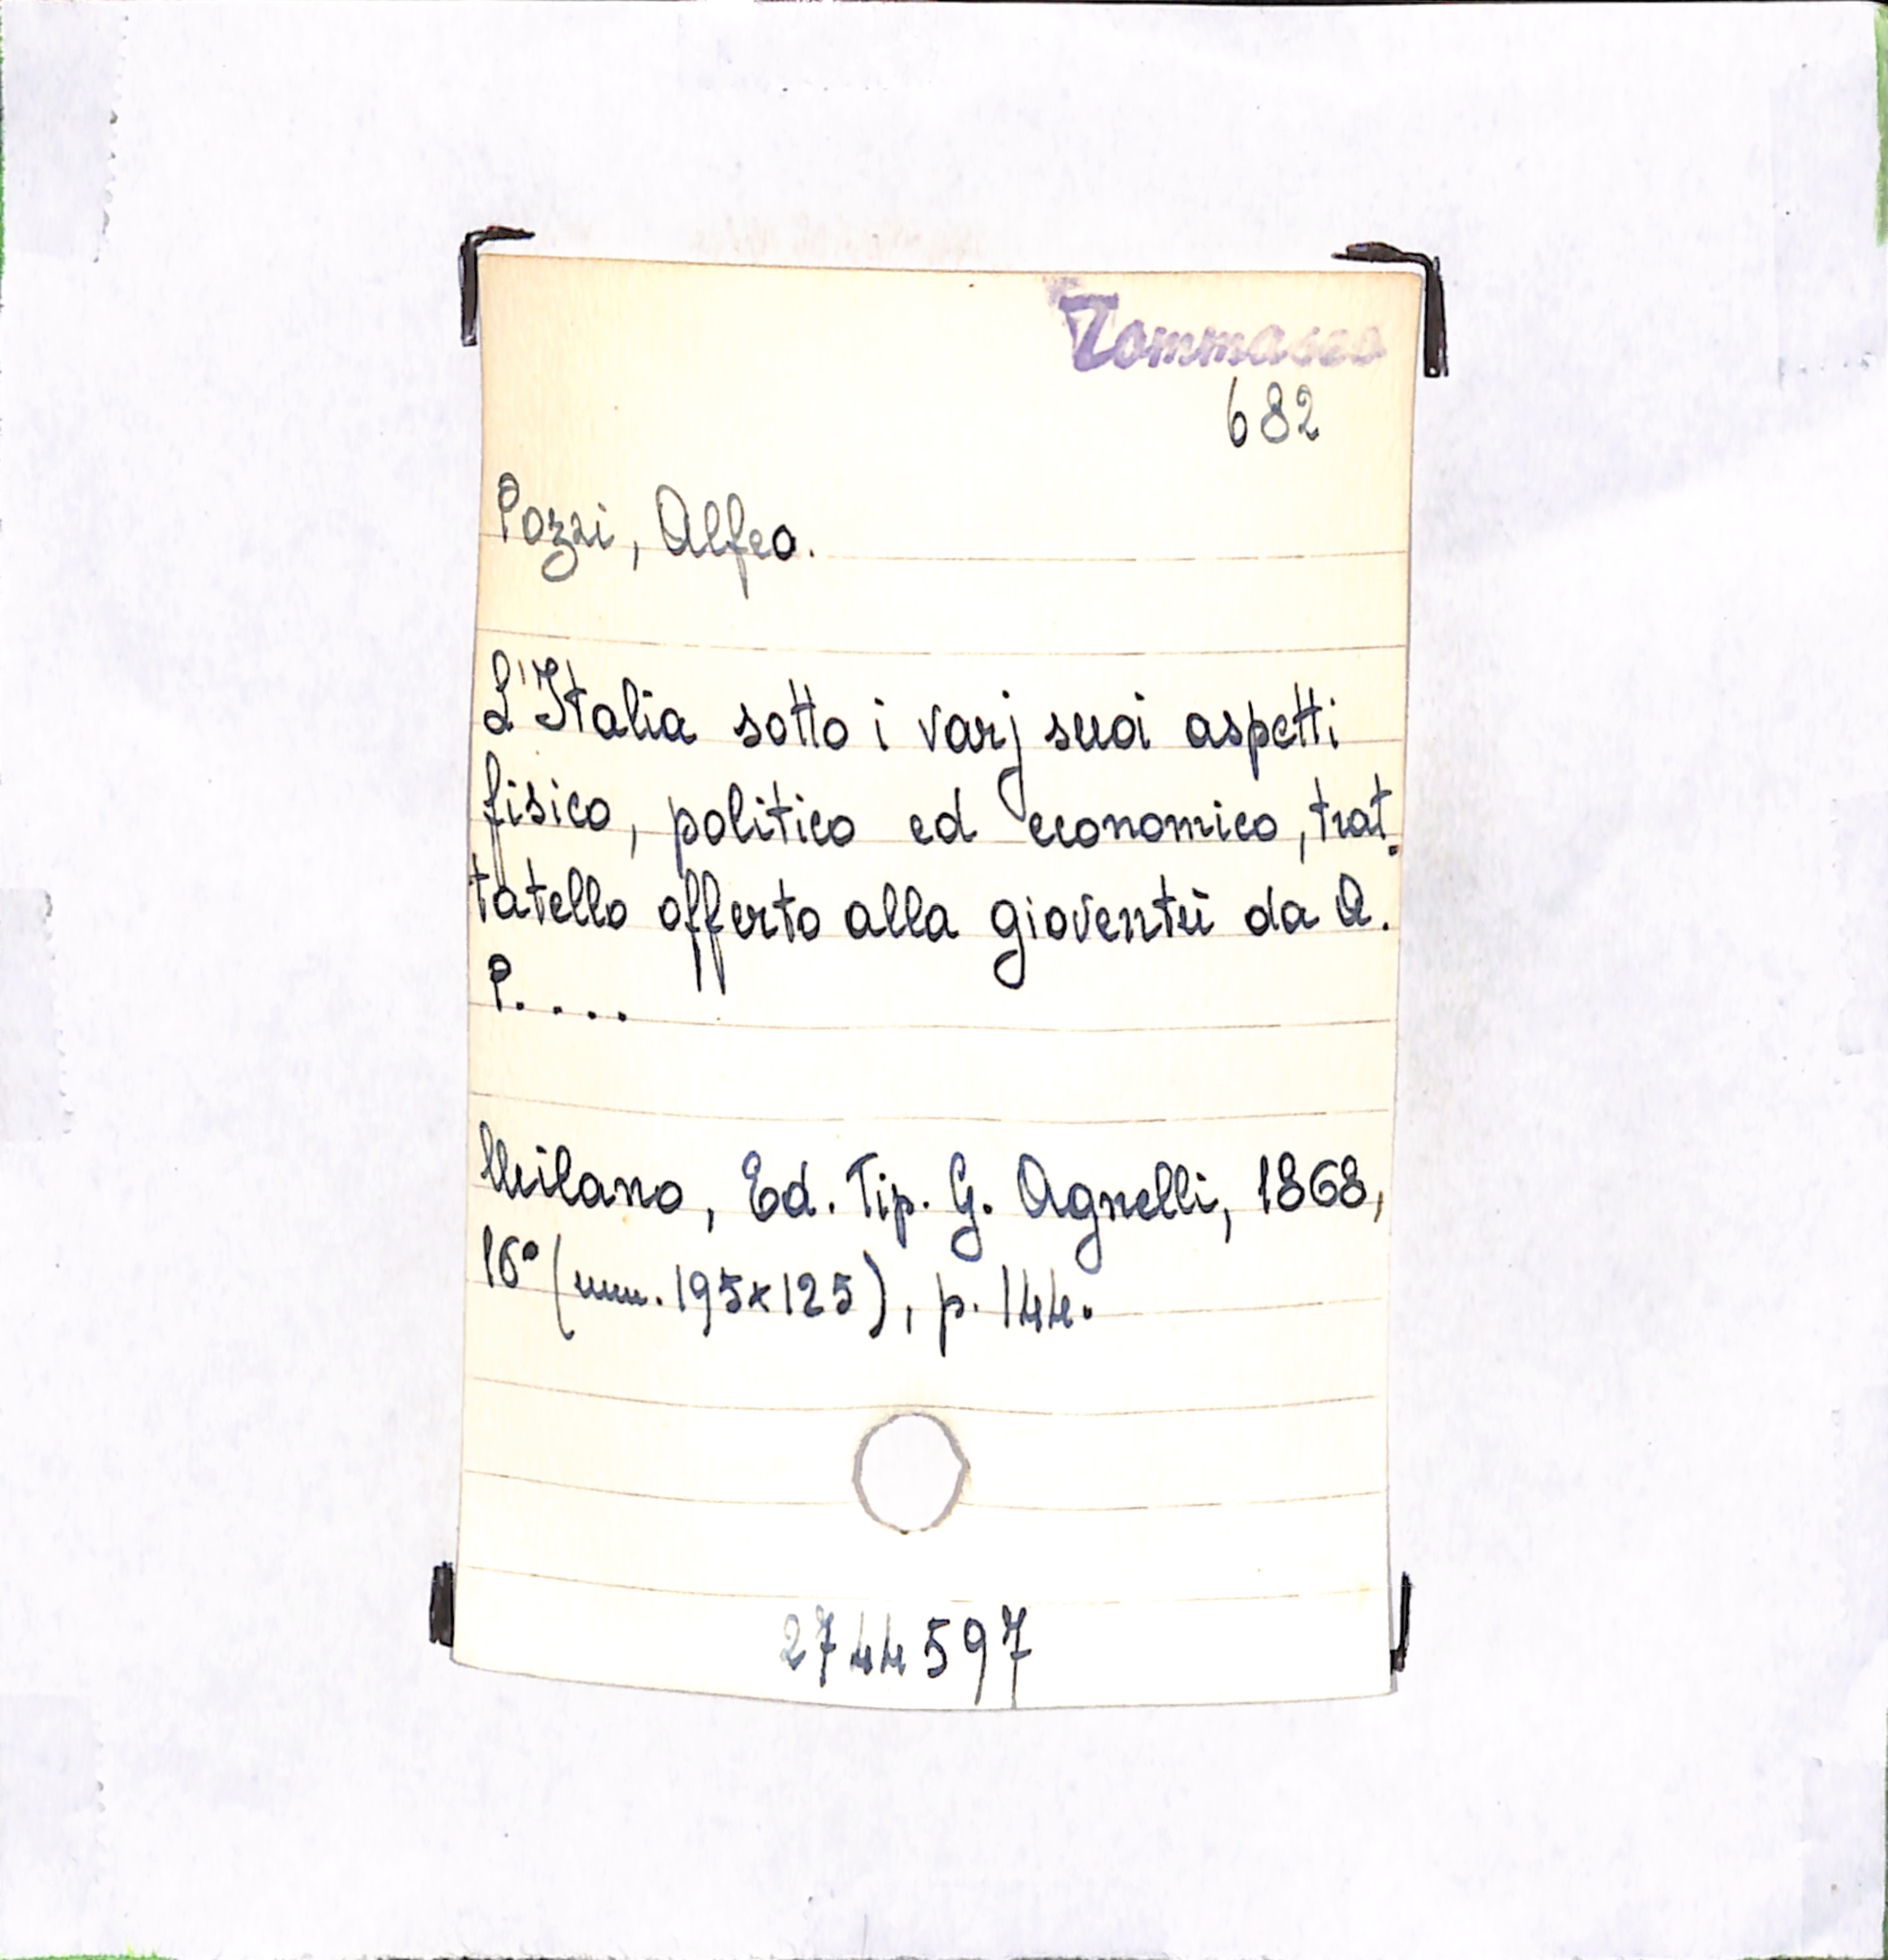 Tommaseo
682
Pozzi, Alfeo.
L'Italia sotto i varj suoi aspetti
fisico, politico ed economico, trat-
tatello offerto alla gioventù da A.
P. . . .
Milano, Ed. Tip. G. Agnelli, 1868,
16° (mm. 195x125), p. 144.
2744597